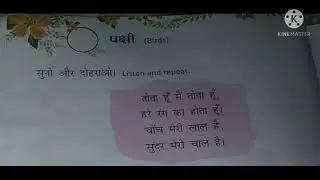 पक्षी (Birds)
KINEMASTER
सुनो और दोहराओ। Listen and repeat.
तोता हूँ मैं तोता हूँ,
हरे रंग का होता हूँ।
चोंच मेरी लाल है,
सुंदर मेरी चाल है।